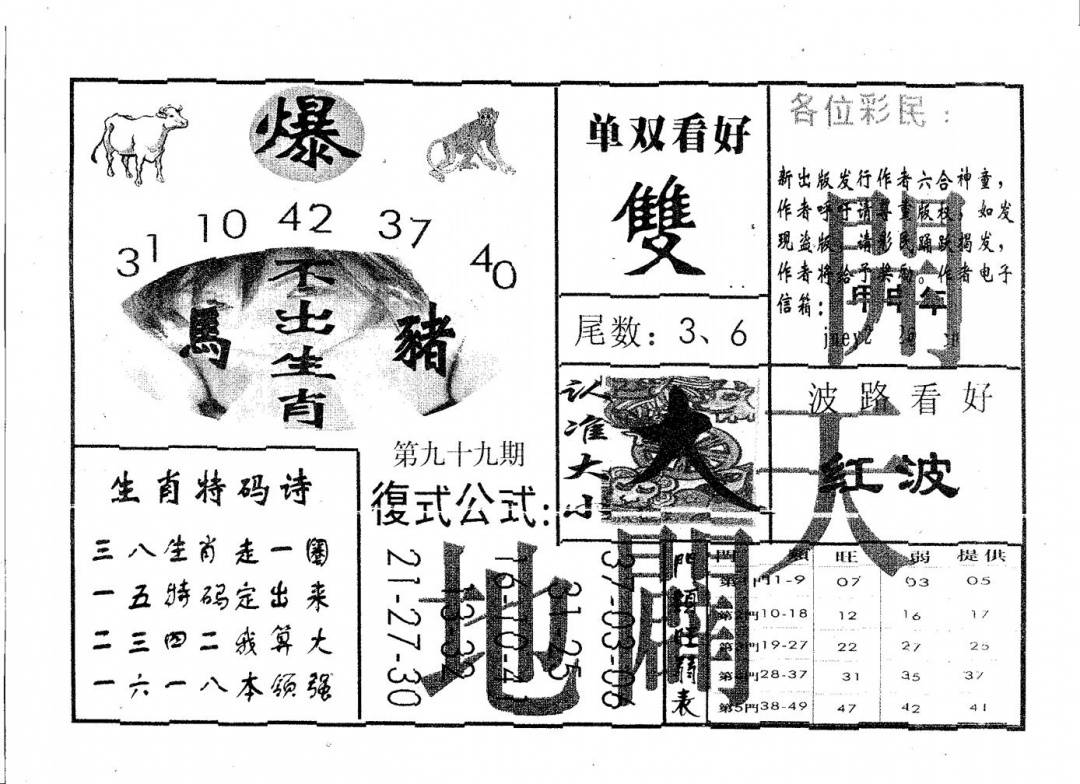 爆
31 10 42 37 40
不出生肖
馬 豬
单双看好
雙
尾数：3、6
各位彩民：
新出版发行作者六合神童，
作者呼吁请尊重版权，如发
现盗版，请彩民踊跃揭发，
作者将给予奖励。作者电子
信箱：
甲申年
開
天
地
闢
认准大小
大
波路看好
红波
生肖特码诗
三八生肖走一圈
一五特码定出来
二三四二我算大
一六一八本领强
第九十九期
復式公式：
37-03-06
31-25
16-10-41
13-32
21-27-30
門類旺弱表
門類 旺 弱 提供
第1門1-9 07 03 05
第2門10-18 12 16 17
第3門19-27 22 27 25
第4門28-37 31 35 37
第5門38-49 47 42 41